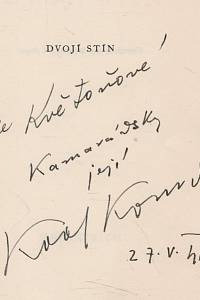 DVOJÍ STÍN
Květoňové!
Kamarádsky
její!
Karel Konrád
27.V.